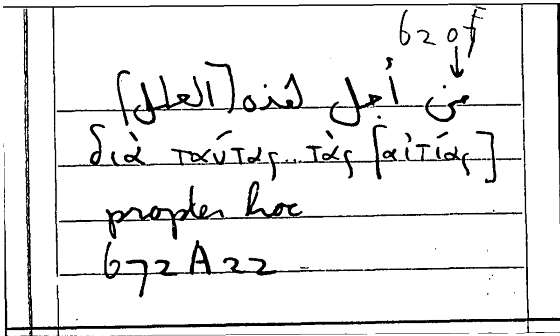 620f
من أجل هذه [العلل]
διὰ ταύτας.. τὰς [αἰτίας]
propter hoc
672A22